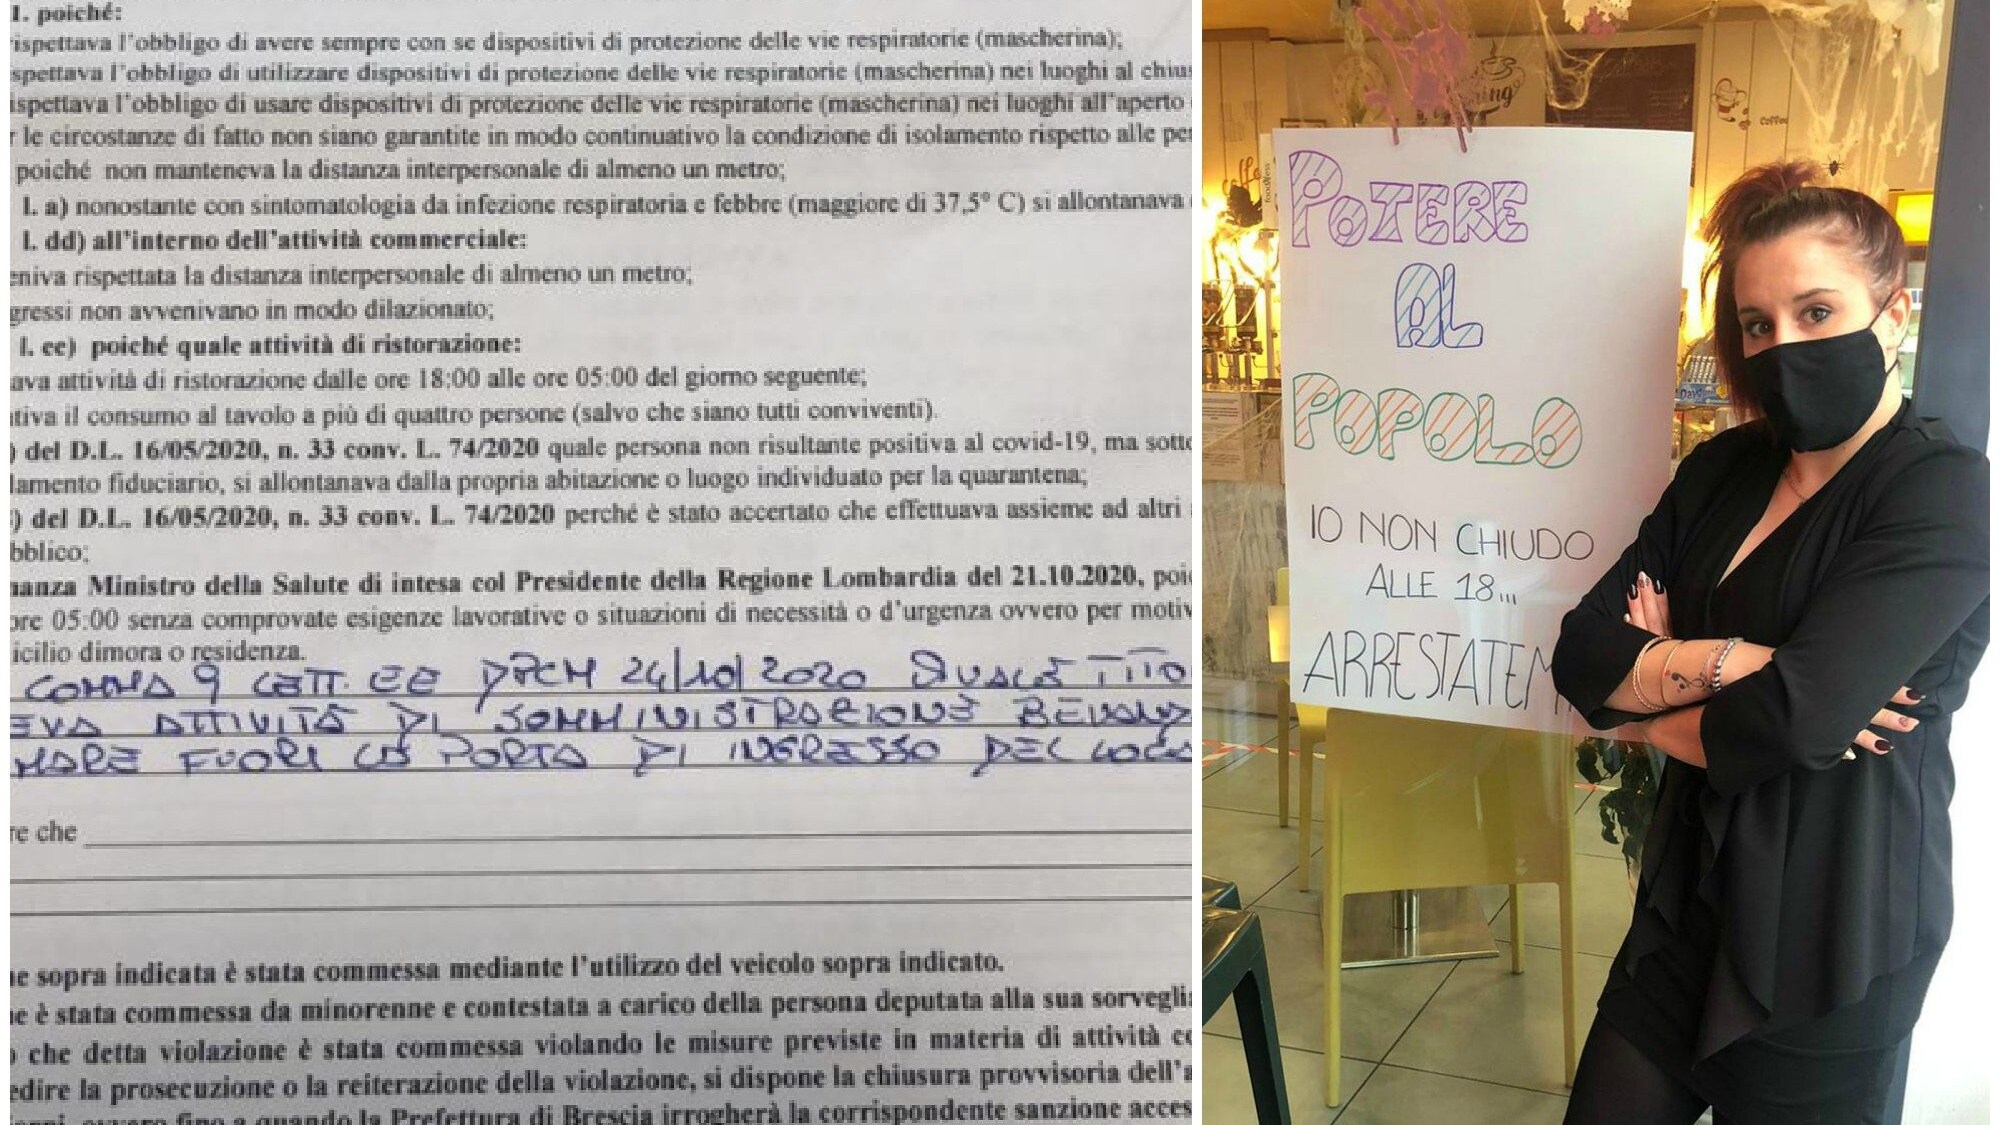 I. poiché:
ispettava l'obbligo di avere sempre con se dispositivi di protezione delle vie respiratorie (mascherina);
spettava l'obbligo di utilizzare dispositivi di protezione delle vie respiratorie (mascherina) nei luoghi al chius
ispettava l'obbligo di usare dispositivi di protezione delle vie respiratorie (mascherina) nei luoghi all'aperto
r le circostanze di fatto non siano garantite in modo continuativo la condizione di isolamento rispetto alle per
poiché non manteneva la distanza interpersonale di almeno un metro;
l. a) nonostante con sintomatologia da infezione respiratoria e febbre (maggiore di 37,5° C) si allontanava
l. dd) all'interno dell'attività commerciale:
eniva rispettata la distanza interpersonale di almeno un metro;
gressi non avvenivano in modo dilazionato;
l. ee) poiché quale attività di ristorazione:
ava attività di ristorazione dalle ore 18:00 alle ore 05:00 del giorno seguente;
ntiva il consumo al tavolo a più di quattro persone (salvo che siano tutti conviventi).
) del D.L. 16/05/2020, n. 33 conv. L. 74/2020 quale persona non risultante positiva al covid-19, ma sotto
lamento fiduciario, si allontanava dalla propria abitazione o luogo individuato per la quarantena;
) del D.L. 16/05/2020, n. 33 conv. L. 74/2020 perché è stato accertato che effettuava assieme ad altri
bblico;
nanza Ministro della Salute di intesa col Presidente della Regione Lombardia del 21.10.2020, poic
ore 05:00 senza comprovate esigenze lavorative o situazioni di necessità o d'urgenza ovvero per motiv
icilio dimora o residenza.
COMMA 9 LETT. EE DPCM 24/10/2020 QUALE TITO
EVA ATTIVITÀ DI SOMMINISTRAZIONE BEVAND
MARE FUORI LA PORTA DI INGRESSO DEL LOCA
re che
ne sopra indicata è stata commessa mediante l'utilizzo del veicolo sopra indicato.
ne è stata commessa da minorenne e contestata a carico della persona deputata alla sua sorvegli
o che detta violazione è stata commessa violando le misure previste in materia di attività co
edire la prosecuzione o la reiterazione della violazione, si dispone la chiusura provvisoria dell'a
ovvero fino a quando la Prefettura di Brescia irrogherà la corrispondente sanzione acces
POTERE
AL
POPOLO
IO NON CHIUDO
ALLE 18...
ARRESTATEM
Coffee